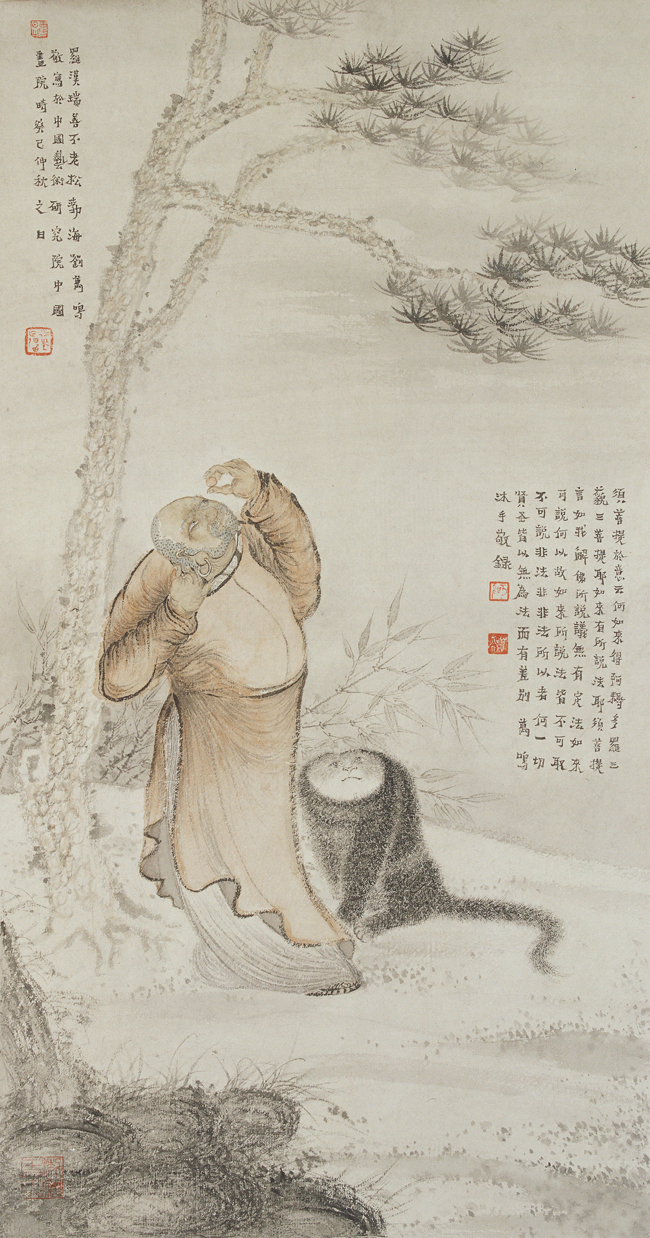 羅漢瑞善不老松勃海劉萬鳴
敬寫於中國藝術研究院中國
畫院時癸巳仲秋之日
須菩提於意云何如來得阿耨多羅三
藐三菩提耶如來有所說法耶須菩提
言如我解佛所說議無有定法如來
可說何以故如來所說法皆不可取
不可說非法非非法所以者何一切
賢圣皆以無為法而有差別 萬鳴
沐手敬錄